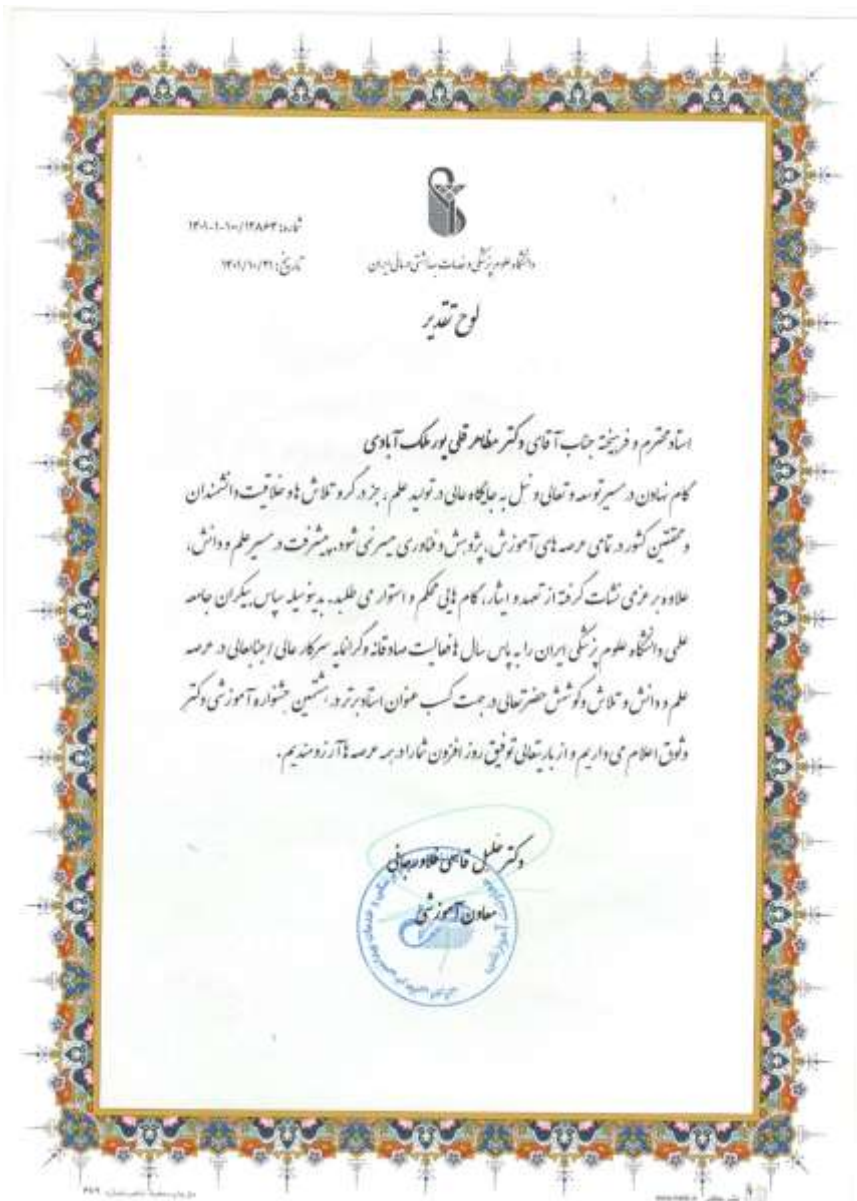 شماره: ۱۴۰۱-۱-۱۰۰/۱۲۸۶۳
تاریخ: ۱۴۰۱/۱۰/۲۱
دانشگاه علوم پزشکی و خدمات بهداشتی درمانی ایران
لوح تقدیر
استاد محترم و فرهیخته جناب آقای دکتر مظاهر قلی پور ملک آبادی
گام نهادن در مسیر توسعه و تعالی و نیل به جایگاه عالی در تولید علم، جز در گرو تلاش ها و خلاقیت دانشمندان
و محققین کشور در تمامی عرصه های آموزش، پژوهش و فناوری میسر نمی شود. پیشرفت در مسیر علم و دانش،
علاوه بر عزمی نشات گرفته از تعهد و ایثار، گام هایی محکم و استوار می طلبد. بدینوسیله سپاس بیکران جامعه
علمی دانشگاه علوم پزشکی ایران را به پاس سال ها فعالیت صادقانه و گرانمایه سرکار عالی / جنابعالی در عرصه
علم و دانش و تلاش و کوشش حضرتعالی در جهت کسب عنوان استاد برتر در هشتمین جشنواره آموزشی دکتر
وثوق اعلام می داریم و از باریتعالی توفیق روز افزون شما را در همه عرصه ها آرزومندیم.
دکتر قاسمی فلاورجانی
معاون آموزشی